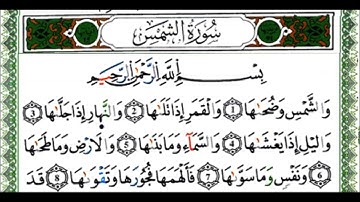 سُورَةُ الشَّمْسِ
بِسْمِ اللَّهِ الرَّحْمَٰنِ الرَّحِيمِ
وَالشَّمْسِ وَضُحَاهَا ① وَالْقَمَرِ إِذَا تَلَاهَا ② وَالنَّهَارِ إِذَا جَلَّاهَا ③
وَاللَّيْلِ إِذَا يَغْشَاهَا ④ وَالسَّمَاءِ وَمَا بَنَاهَا ⑤ وَالْأَرْضِ وَمَا طَحَاهَا
⑥ وَنَفْسٍ وَمَا سَوَّاهَا ⑦ فَأَلْهَمَهَا فُجُورَهَا وَتَقْوَاهَا ⑧ قَدْ